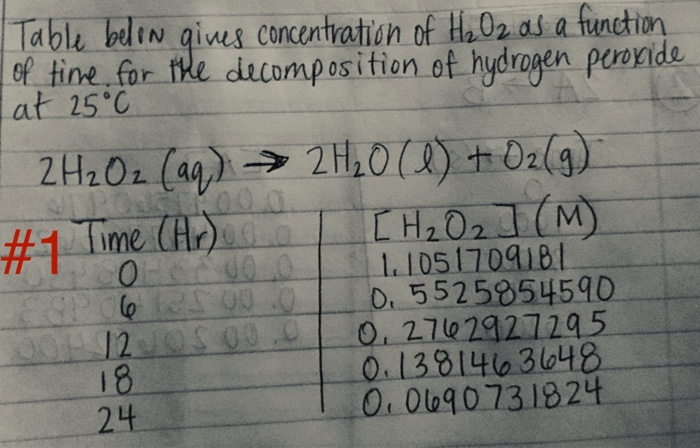 Table below gives concentration of H₂O₂ as a function
of time for the decomposition of hydrogen peroxide
at 25°C
2H₂O₂ (aq) → 2H₂O (l) + O₂(g)
#1 Time (Hr) [H₂O₂] (M)
0 1.1051709181
6 0.5525854590
12 0.2762927295
18 0.1381463648
24 0.0690731824